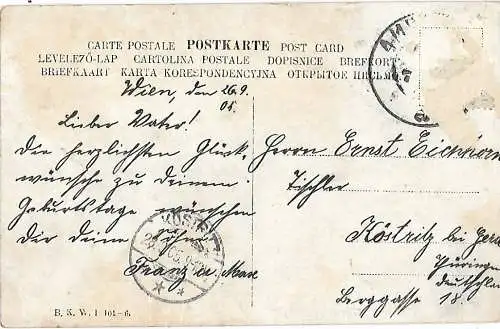 CARTE POSTALE POSTKARTE POST CARD
LEVELEZŐ-LAP CARTOLINA POSTALE DOPISNICE BREFKORT
BRIEFKAART KARTA KORESPONDENCYJNA ОТКРЫТОЕ ПИСЬМО
Wien, den 26.9.
Lieber Vater!
Die herzlichsten Glück-
wünsche zu deinem
Geburtstage wünschen
dir deine Söhne
Franz u. Max
Herrn Ernst Eichhorn
Tischler
Köstritz bei Gera
Thüringen
Deutschland
Berggasse 18.
KÖSTRITZ
B. K. W. I 101-6.